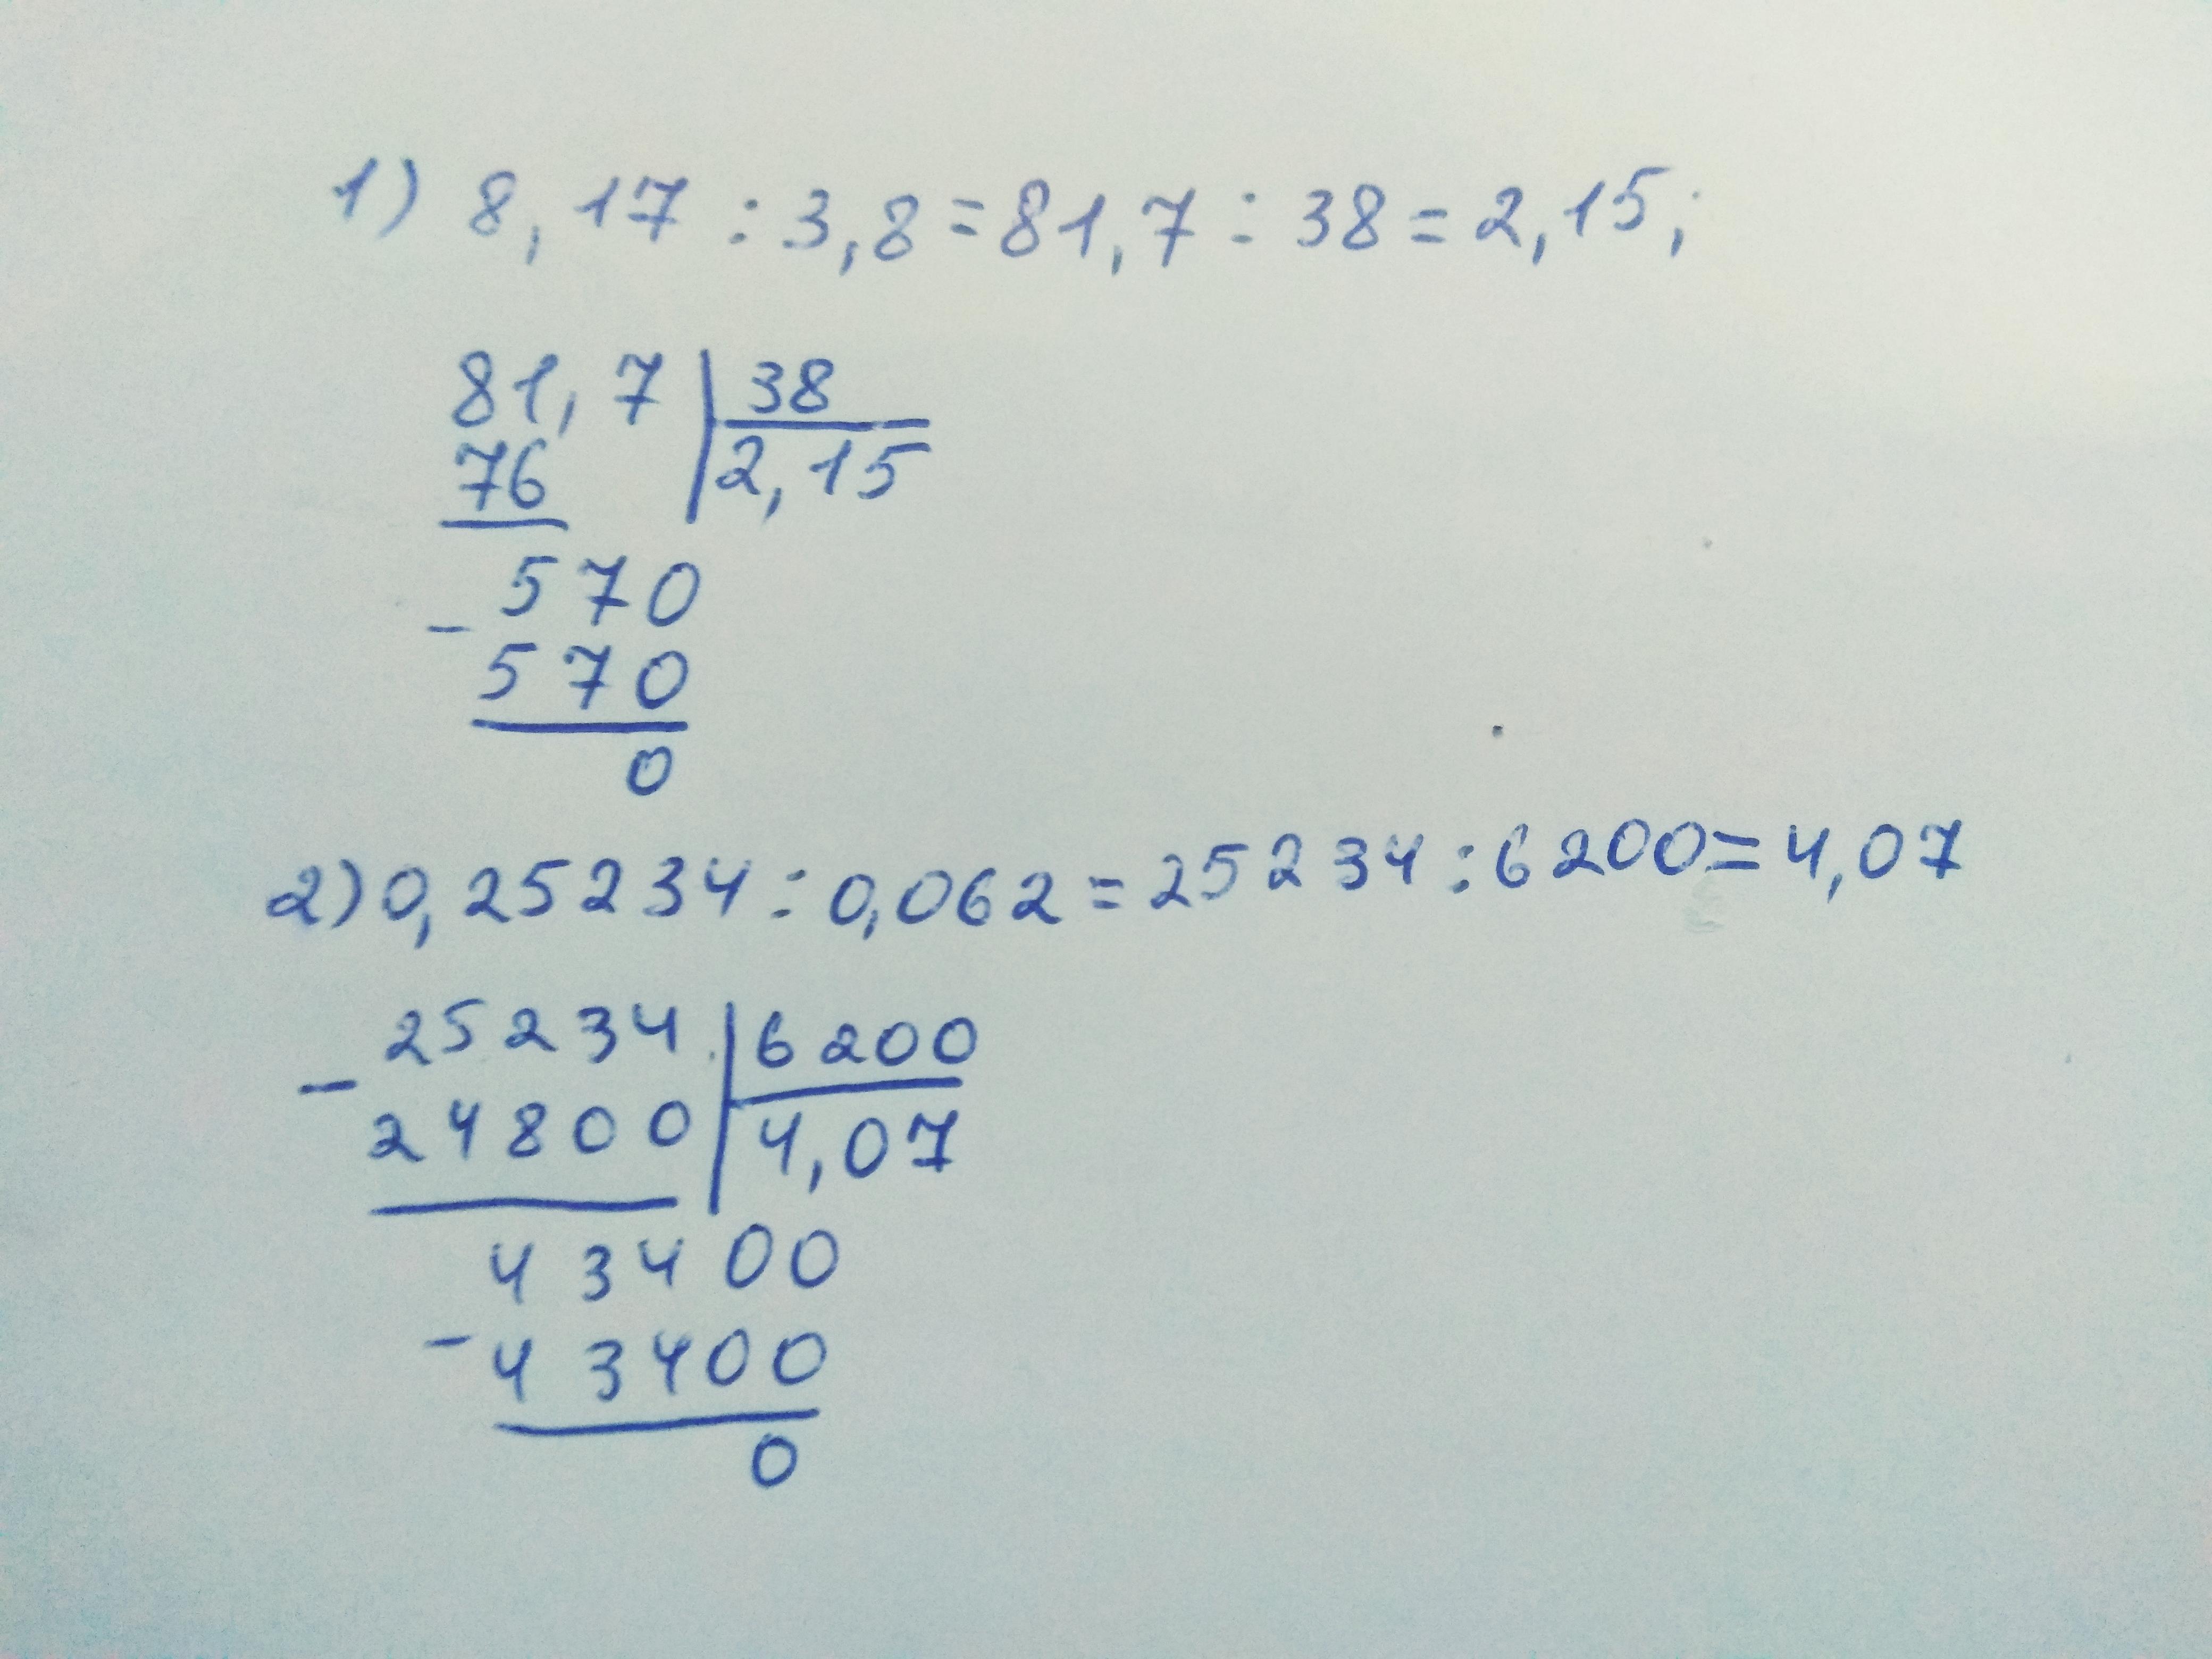 1) 8,17 : 3,8 = 81,7 : 38 = 2,15;
81,7 | 38
76 | 2,15
570
- 570
0
2) 0,25234 : 0,062 = 25234 : 6200 = 4,07
- 25234 | 6200
24800 | 4,07
43400
- 43400
0